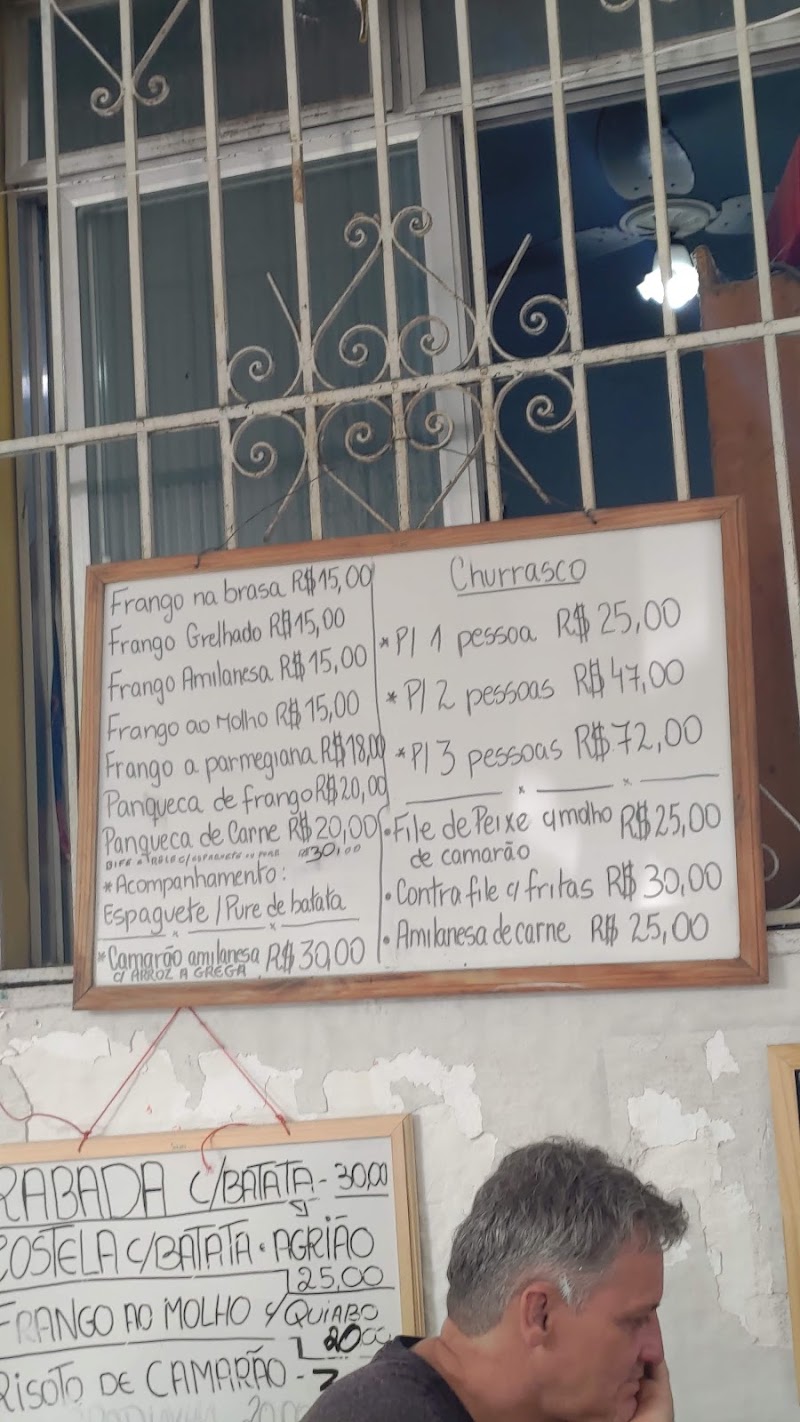 Frango na brasa R$15,00
Frango Grelhado R$15,00
Frango Amilanesa R$15,00
Frango ao Molho R$15,00
Frango a parmegiana R$18,00
Panqueca de frango R$20,00
Panqueca de Carne R$20,00
R$30,00
*Acompanhamento:
Espaguete / Pure de batata
*Camarão amilanesa R$30,00
C/ ARROZ A GREGA
Churrasco
* P/ 1 pessoa R$ 25,00
* P/ 2 pessoas R$ 47,00
* P/ 3 pessoas R$ 72,00
• File de Peixe c/molho R$25,00
de camarão
• Contra file c/ fritas R$ 30,00
• Amilanesa de carne R$ 25,00
RABADA C/BATATA - 30,00
COSTELA C/BATATA • AGRIÃO
25,00
FRANGO AO MOLHO C/ QUIABO
20,00
RISOTO DE CAMARÃO -